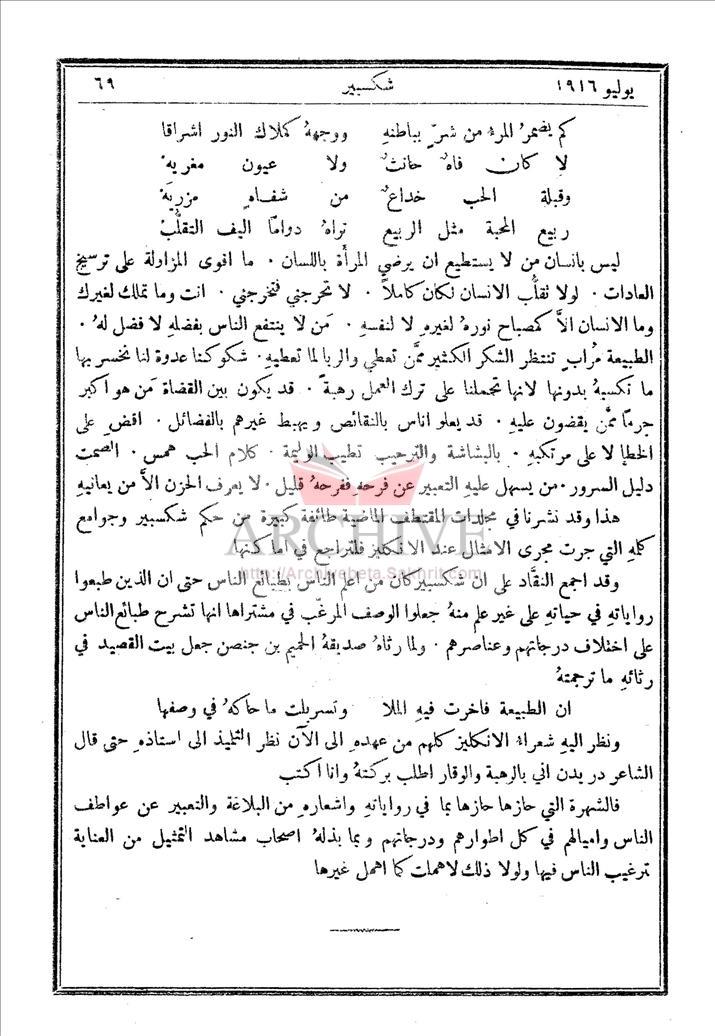 يوليو ١٩١٦ شكسبير ٦٩
كم يضمر المرء من شرّ بباطنهِ ووجههُ كملاك النور اشراقا
لا كان فاهٌ حانثٌ ولا عيون مغريهْ
وقبلة الحب خداعٌ من شفاهٍ مزريَهْ
ربيع المحبة مثل الربيع تراهُ دوامًا اليف التقلُّبْ
ليس بانسان من لا يستطيع ان يرضي المرأة باللسان . ما اقوى المزاولة على ترسيخ
العادات . لولا تقلُّب الانسان لكان كاملاً . لا تحرجني فتخرجني . انت وما تملك لغيرك
وما الانسان الاَّ كمصباح نورهُ لغيرهِ لا لنفسهِ . مَن لا ينتفع الناس بفضلهِ لا فضل لهُ .
الطبيعة مُرابٍ تنتظر الشكر الكثير ممَّن تعطي والربا لما تعطيهِ . شكوكنا عدوة لنا نخسر بها
ما نكسبهُ بدونها لانها تحملنا على ترك العمل رهبةً . قد يكون بين القضاة مَن هو اكبر
جرمًا ممَّن يقضون عليهِ . قد يعلو اناس بالنقائص ويهبط غيرهم بالفضائل . اقضِ على
الخطإ لا على مرتكبهِ . بالبشاشة والترحيب تطيب الوليمة . كلام الحب همس . الصمت
دليل السرور . من يسهل عليهِ التعبير عن فرحهِ ففرحهُ قليل . لا يعرف الحزن الاَّ من يعانيهِ
هذا وقد نشرنا في مجلدات المقتطف الماضية طائفة كبيرة من حكم شكسبير وجوامع
كلمهِ التي جرت مجرى الامثال عند الانكليز فلتراجع في اماكنها
وقد اجمع النقَّاد على ان شكسبير كان من اعلم الناس بطبائع الناس حتى ان الذين طبعوا
رواياتهِ في حياتهِ على غير علم منهُ جعلوا الوصف المرغّب في مشتراها انها تشرح طبائع الناس
على اختلاف درجاتهم وعناصرهم . ولما رثاهُ صديقهُ الحميم بن جنصن جعل بيت القصيد في
رثائهِ ما ترجمتهُ
ان الطبيعة فاخرت فيهِ الملا وتسربلت ما حاكهُ في وصفها
ونظر اليهِ شعراء الانكليز كلهم من عهدهِ الى الآن نظر التلميذ الى استاذهِ حتى قال
الشاعر دريدن اني بالرهبة والوقار اطلب بركتهُ وانا اكتب
فالشهرة التي حازها حازها بما في رواياتهِ واشعارهِ من البلاغة والتعبير عن عواطف
الناس واميالهم في كل اطوارهم ودرجاتهم وبما بذلهُ اصحاب مشاهد التمثيل من العناية
ترغيب الناس فيها ولولا ذلك لاهملت كما اهمل غيرها
ARCHIVE
http://Archivebeta.Sakhrit.com